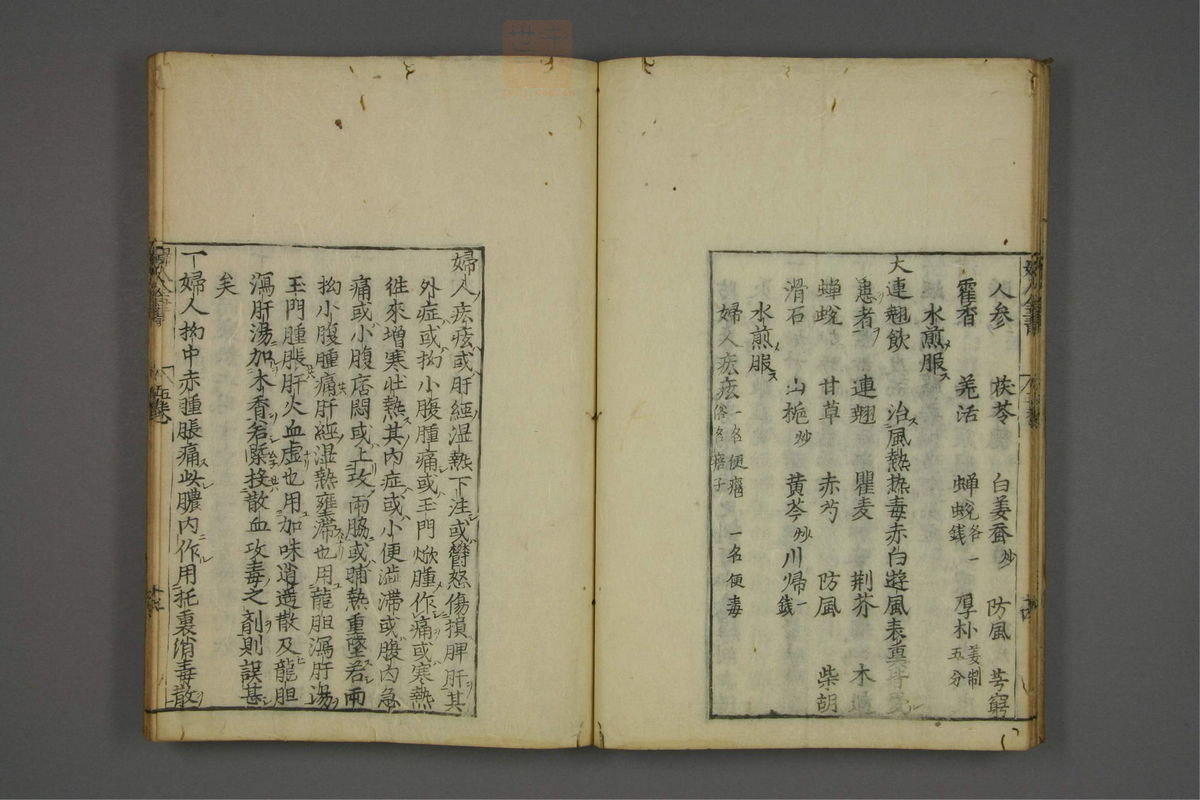 人参 茯苓 白姜蚕炒 防風 芎窮
霍香 羌活 蝉蛻各一錢 厚朴姜制五分
水煎服
大連翹飲 治風熱热毒赤白遊風表裏
患者 連翹 瞿麦 荆芥 木通
蝉蛻 甘草 赤芍 防風 柴胡
滑石 山梔炒 黄芩炒 川帰一錢
水煎服
婦人疝㽵一名便癰俗名㾦子 一名便毒
婦人疝㽵或肝經湿熱下注或欝怒傷損脾肝其
外症或抝小腹腫痛或玉門焮腫作痛或寒熱
徃來増寒壮熱其内症或小便澁滞或腹内急
痛或小腹痞悶或上攻兩脇或晡熱重墜若兩
抝小腹腫痛肝經湿熱雍滞也用龍胆瀉肝湯
玉門腫脹肝火血虚也用加味逍遥散及龍胆
瀉肝湯加木香若緊接散血攻毒之剤則誤甚
矣
一婦人抝中赤腫脹痛此膿内作用托裏消毒散